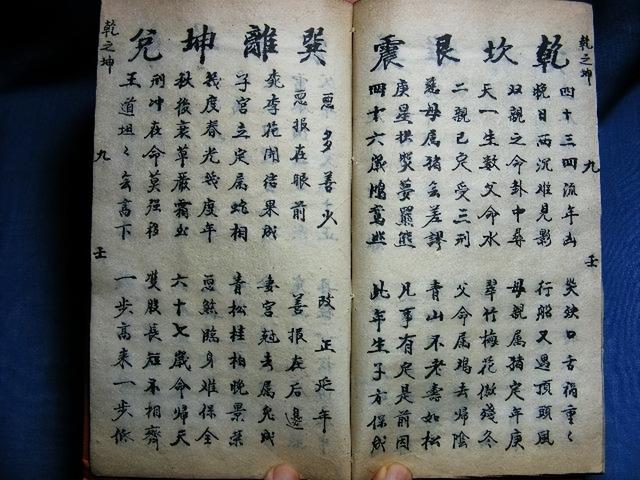 乾 坎 艮 震
乾之坤 九 壬
四十三四流年凶 災缺口舌禍重〻
晚日西沉難見影 行船又遇頂頭風
双親之命卦中尋 母親属猪定年庚
天一生数父命水 翠竹梅花傲残冬
二親已定受三刑 父命属鸡去帰陰
慈母属猪無差謬 青山不老壽如松
庚星拱照夢羆熊 凡事有定是前因
四十六歲鴻鸞照 此年生子方保成
巽 離 坤 兌
惡多善少 改正延年
惡報在眼前 善報在后邊
桃李花開结果成 妻宮尅去属兔成
子宮立定属蛇相 青松桂柏晚景荣
幾度春光幾度年 豆煞臨身难保全
秋後衰草嚴霜出 六十七歲命帰天
刑冲在命莫强移 雙股長短不相齊
王道坦〻有高下 一步高来一步低
乾之坤 九 壬